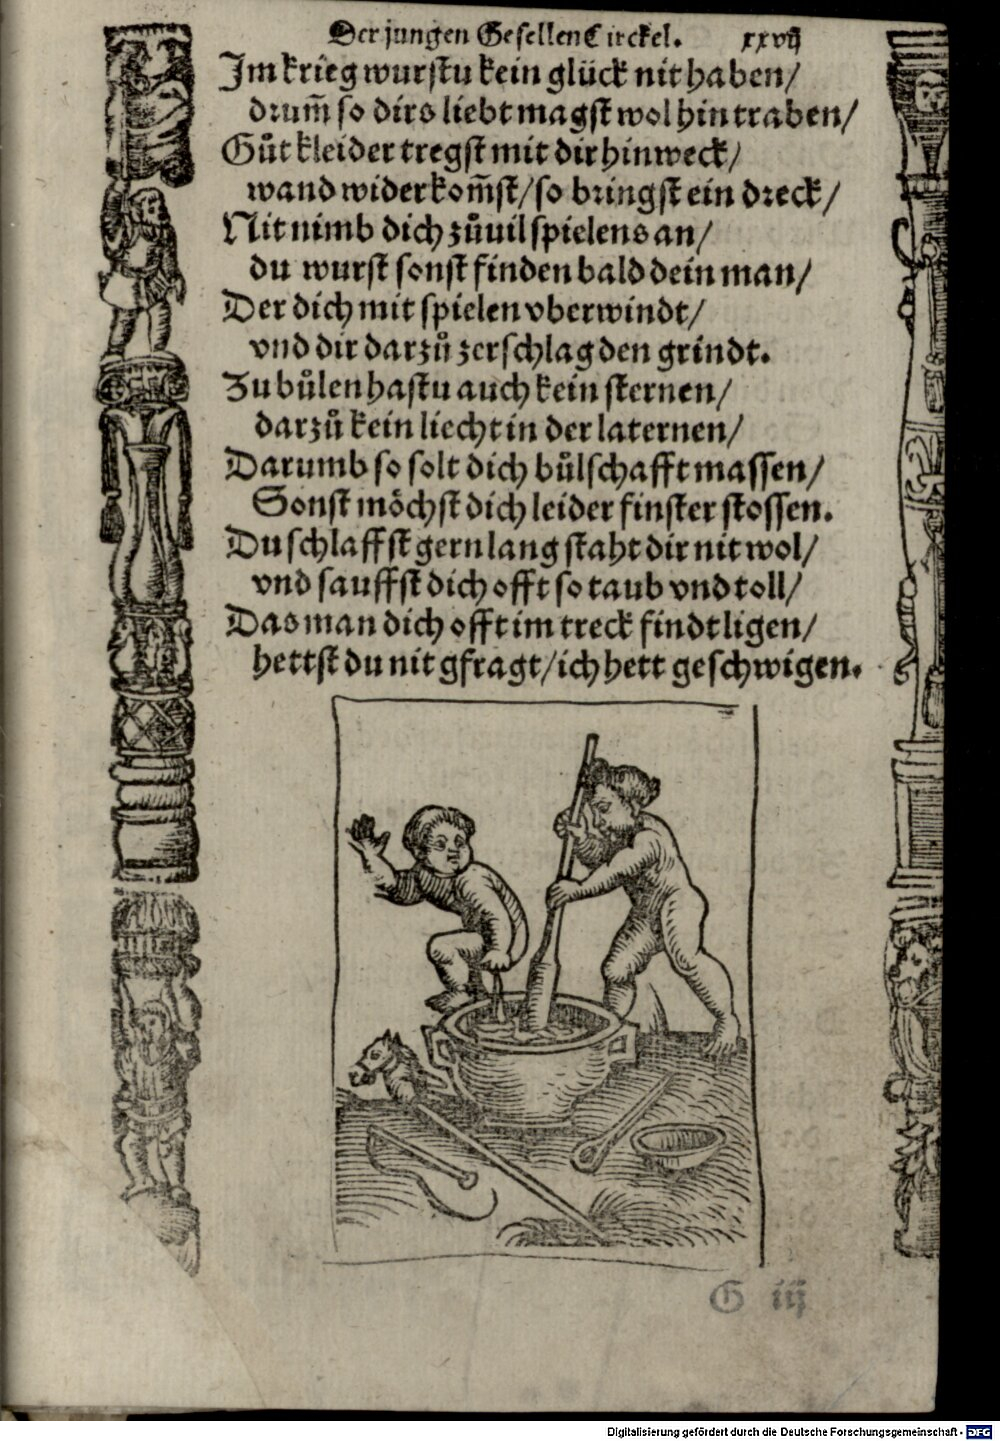 Der jungen Gesellen Circkel. xxvij
Im krieg wurstu kein glück nit haben/
drum̄ so dirs liebt magst wol hin traben/
Gůt kleider tregst mit dir hinweck/
wand widerkom̄st/so bringst ein dreck/
Nit nimb dich zůuil spielens an/
du wurst sonst finden bald dein man/
Der dich mit spielen vberwindt/
vnd dir darzů zerschlag den grindt.
Zu bůlen hastu auch kein sternen/
darzů kein liecht in der laternen/
Darumb so solt dich bůlschafft massen/
Sonst möchst dich leider finster stossen.
Du schlaffst gern lang staht dir nit wol/
vnd sauffst dich offt so taub vnd toll/
Das man dich offt im treck findt ligen/
hettst du nit gfragt/ich hett geschwigen.
G iij
Digitalisierung gefördert durch die Deutsche Forschungsgemeinschaft - DFG